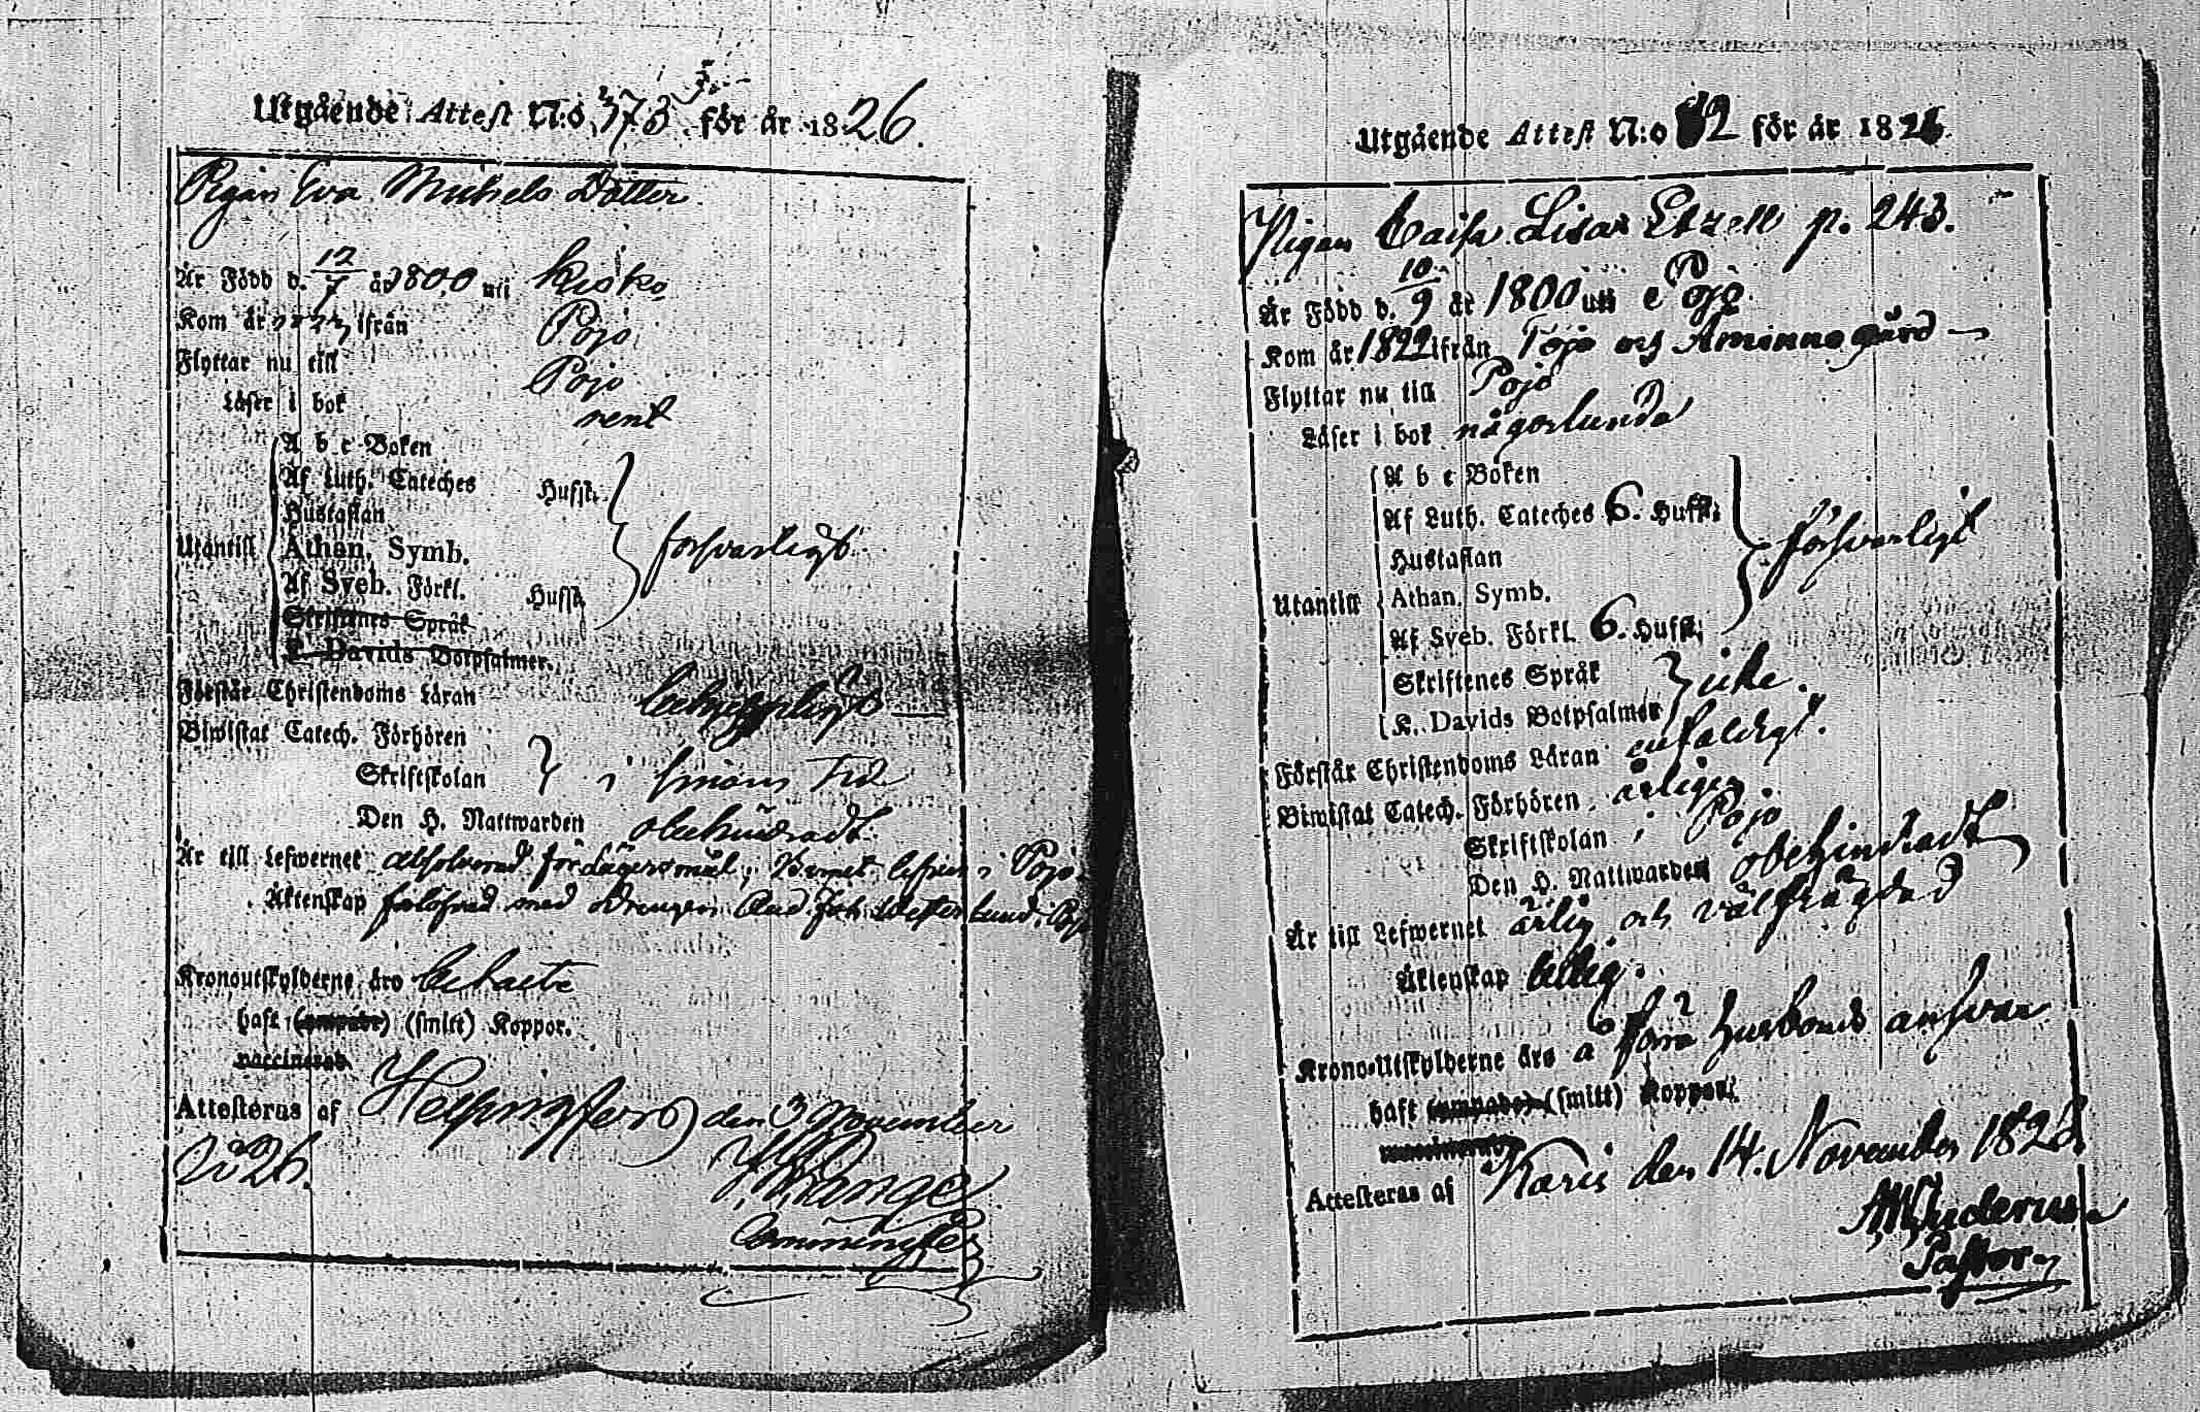 Utgående Attest N:o 373 för år 1826.
Pigan Eva Michels Dotter
Är Född d. 12/7 år 1800 uti Kisko
Kom år ifrån Pojo
Flyttar nu till Pojo
Läser i bok rent
A b c Boken
Af Luth. Cateches Hufst.
Hustaflan
Utantill Athan. Symb. försvarligt
Af Sveb. Förkl. Hufst.
Skriftenes Språk
K. Davids Botpsalmer.
Förstår Christendoms Läran
Biwistat Catech. Förhören
Skriftskolan i sinom tid
Den H. Nattwarden obehindradt
Är till Lefwernet absolverad för Lägersmål, i Pojo
Äktenskap förlofvad med Drengen And. Joh. Westerlund i Pojo
Kronoutskylderne äro betalte
haft (ympade) (smitt) Koppor.
vaccinerad
Attesteras af Helsingfors den 3 November
1826.
Utgående Attest N:o 12 för år 1826
Pigan Caisa Lisa p. 243.
Är Född d. 10/9 år 1800 uti Pojo
Kom år 1822 ifrån Pojo och Åminne gård
Flyttar nu till Pojo
Läser i bok någorlunda
A b c Boken
Af Luth. Cateches 6. Hufst.
Hustaflan
Utantill Athan. Symb. försvarligt
Af Sveb. Förkl. 6. Hufst.
Skriftenes Språk
K. Davids Botpsalmer icke.
Förstår Christendoms Läran enfaldigt.
Biwistat Catech. Förhören årligen
Skriftskolan i Pojo
Den H. Nattwarden obehindradt
Är till Lefwernet ärlig och välfrägdad
Äktenskap ledig.
Krono-Utskylderne äro å förra husbonds answar
haft (ympade) (smitt) Koppor.
vaccinerad
Attesteras af Karis den 14. November 1826.
Pastor